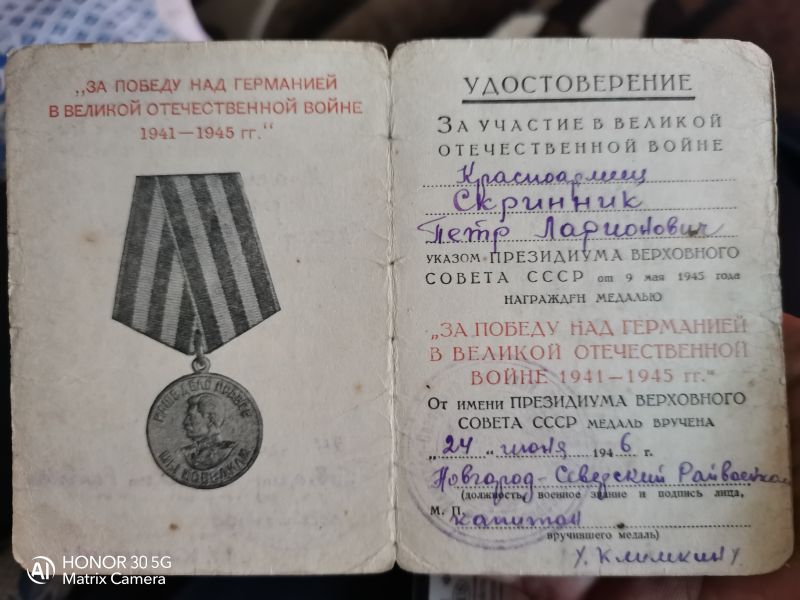 „ЗА ПОБЕДУ НАД ГЕРМАНИЕЙ
В ВЕЛИКОЙ ОТЕЧЕСТВЕННОЙ ВОЙНЕ
1941—1945 гг.“
НАШЕ ДЕЛО ПРАВОЕ
МЫ ПОБЕДИЛИ
УДОСТОВЕРЕНИЕ
ЗА УЧАСТИЕ В ВЕЛИКОЙ
ОТЕЧЕСТВЕННОЙ ВОЙНЕ
Красноармеец
Скринник
Петр Ларионович
УКАЗОМ ПРЕЗИДИУМА ВЕРХОВНОГО
СОВЕТА СССР от 9 мая 1945 года
НАГРАЖДЕН МЕДАЛЬЮ
„ЗА ПОБЕДУ НАД ГЕРМАНИЕЙ
В ВЕЛИКОЙ ОТЕЧЕСТВЕННОЙ
ВОЙНЕ 1941—1945 гг.“
От имени ПРЕЗИДИУМА ВЕРХОВНОГО
СОВЕТА СССР МЕДАЛЬ ВРУЧЕНА
„24 “ июня 1946 г.
Новгород-Северский Райвоенком
(должность, военное звание и подпись лица,
М. П. капитан
вручившего медаль)
HONOR 30 5G
Matrix Camera